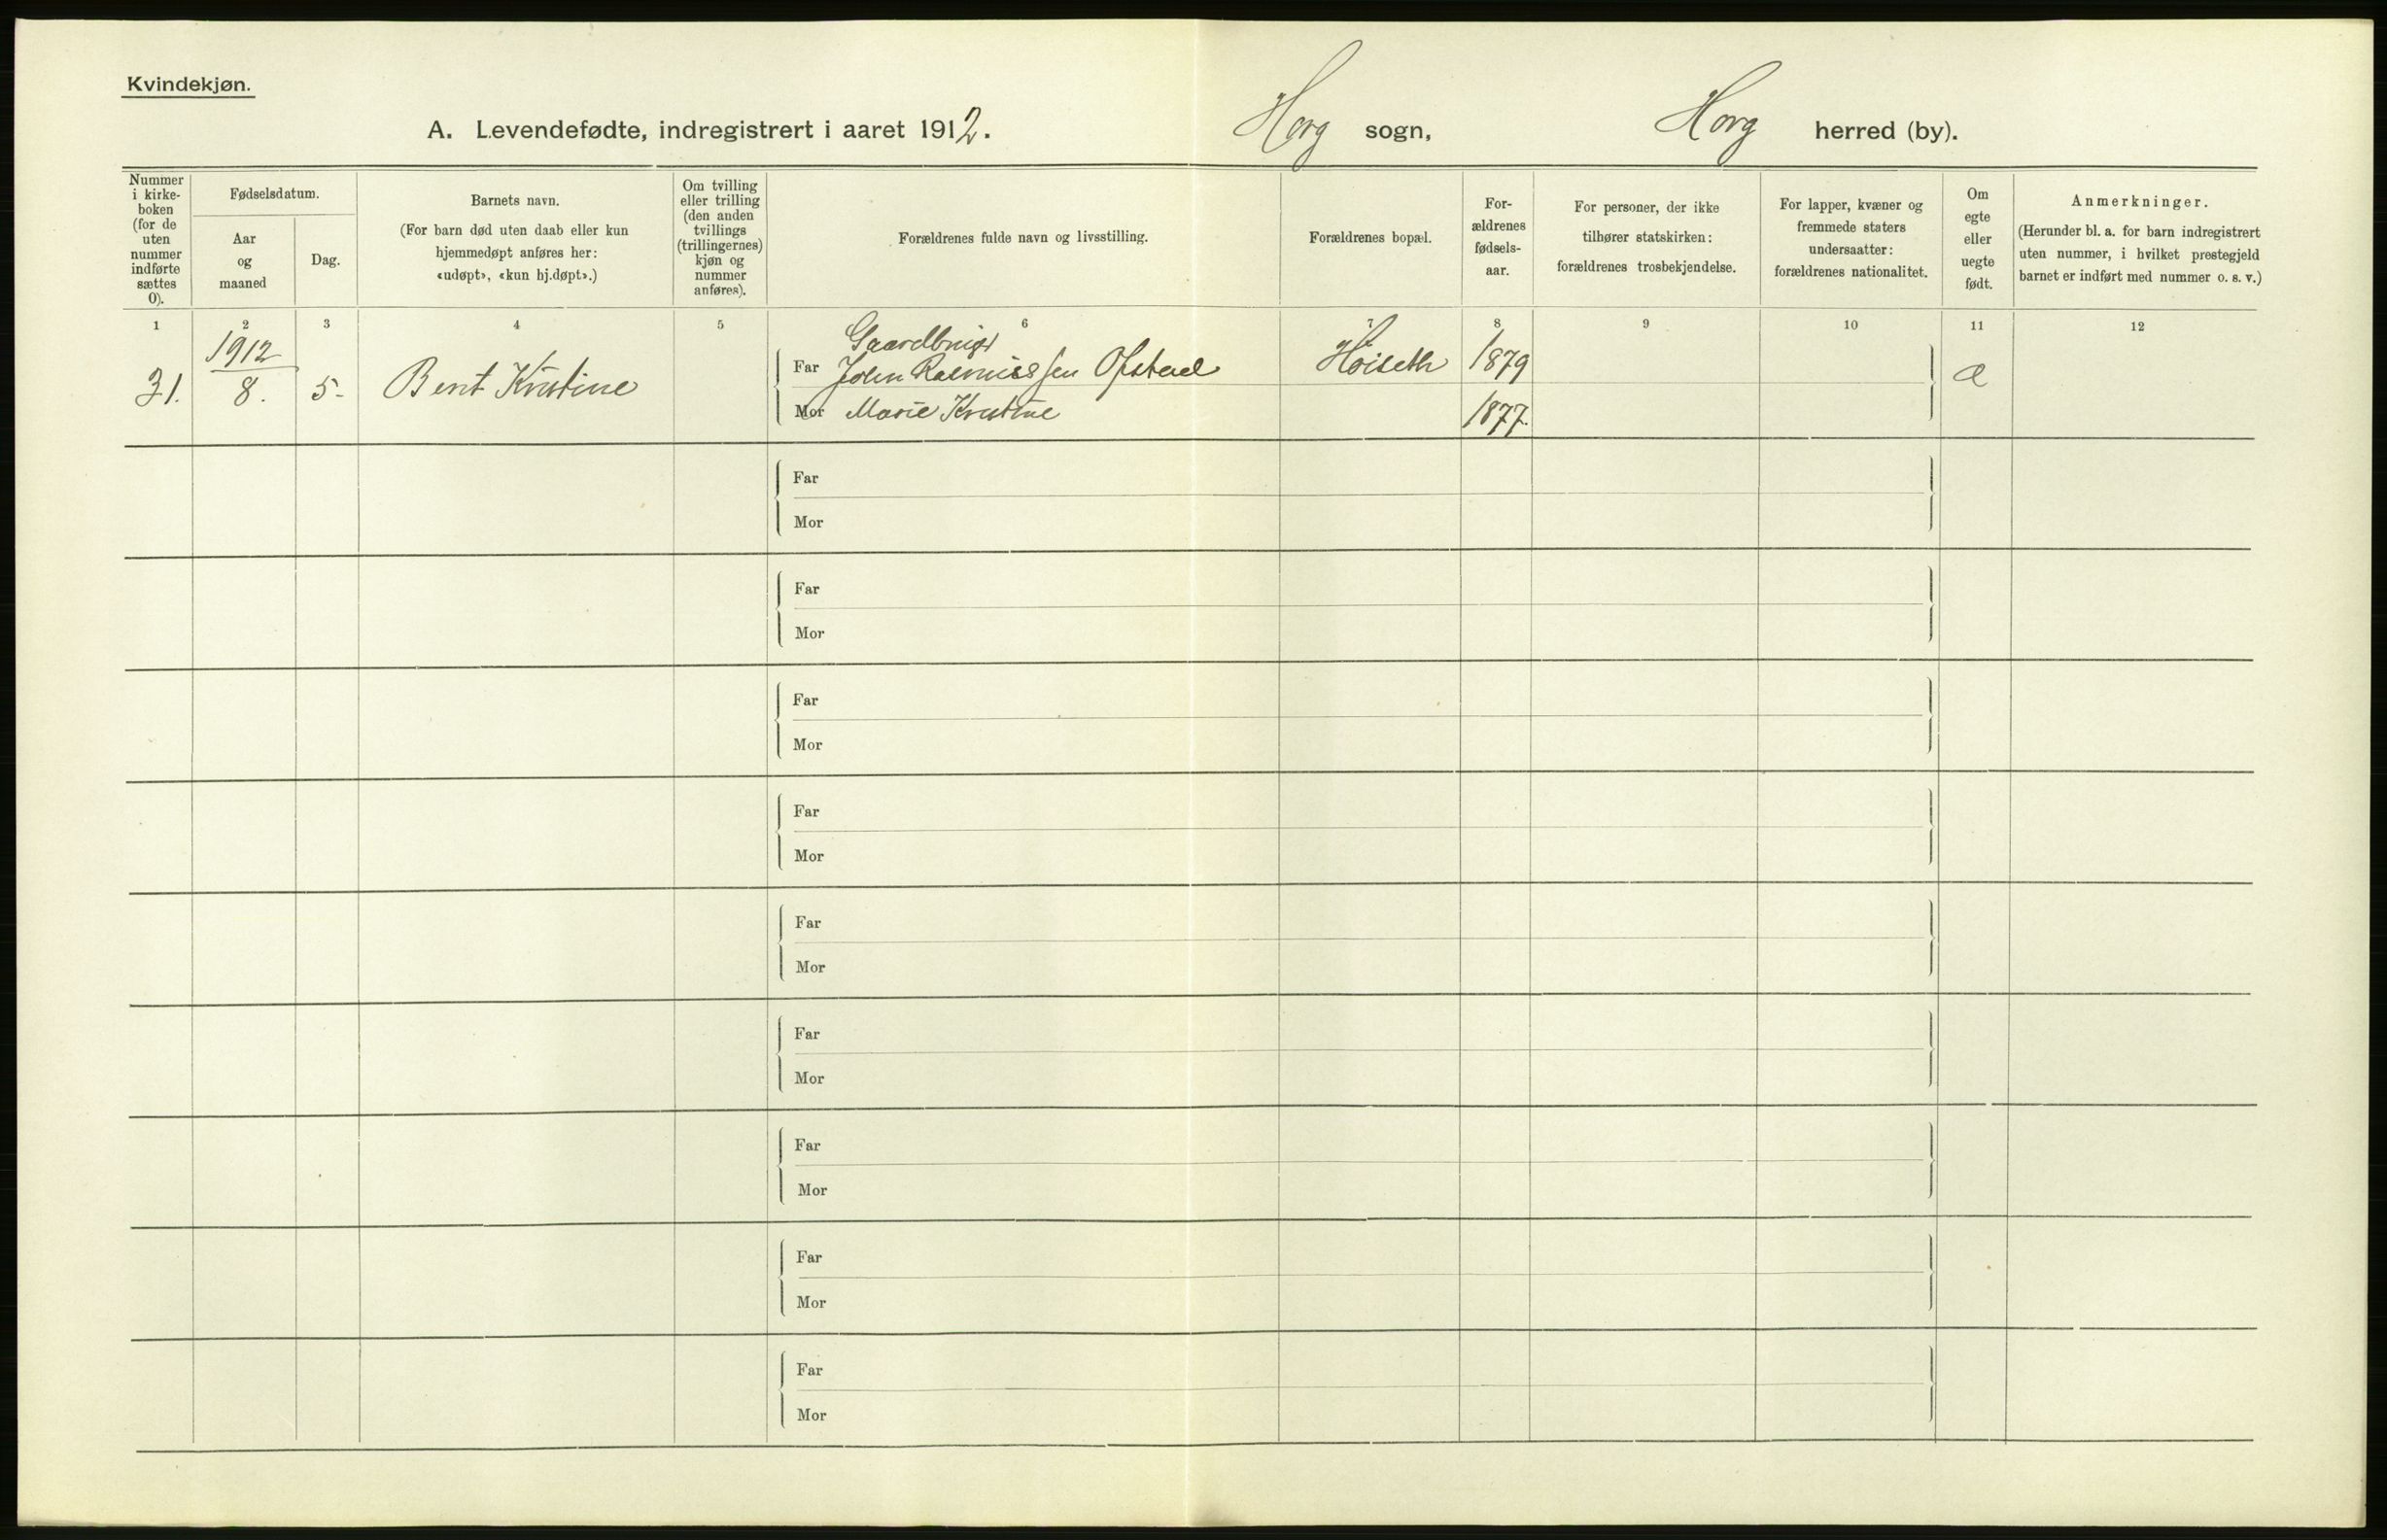 Kvindekjøn.
A. Levendefødte, indregistrert i aaret 1912. Horg sogn, Horg herred (by).
Nummer i kirke- boken (for de uten nummer indførte sættes 0).
Fødselsdatum.
Aar og maaned
Dag.
Barnets navn.
(For barn død uten daab eller kun
hjemmedøpt anføres her:
«udøpt», «kun hj.døpt».)
Om tvilling
eller trilling
(den anden
tvillings
(trillingernes)
kjøn og
nummer
anføres).
Forældrenes fulde navn og livsstilling.
Forældrenes bopæl.
For-
ældrenes
fødsels-
aar.
For personer, der ikke
tilhører statskirken:
forældrenes trosbekjendelse.
For lapper, kvæner og
fremmede staters
undersaatter:
forældrenes nationalitet.
Om
egte
eller
uegte
født.
Anmerkninger.
(Herunder bl. a. for barn indregistrert
uten nummer, i hvilket prestegjeld
barnet er indført med nummer o. s. v.)
1 2 3 4 5 6 7 8 9 10 11 12
1912 Gaardbruger
Far John Rasmussen Ofstad Høiseth 1879
31. 8. 5- Berit Kristine æ
Mor Marie Kristine 1877.
Far
Mor
Far
Mor
Far
Mor
Far
Mor
Far
Mor
Far
Mor
Far
Mor
Far
Mor
Far
Mor